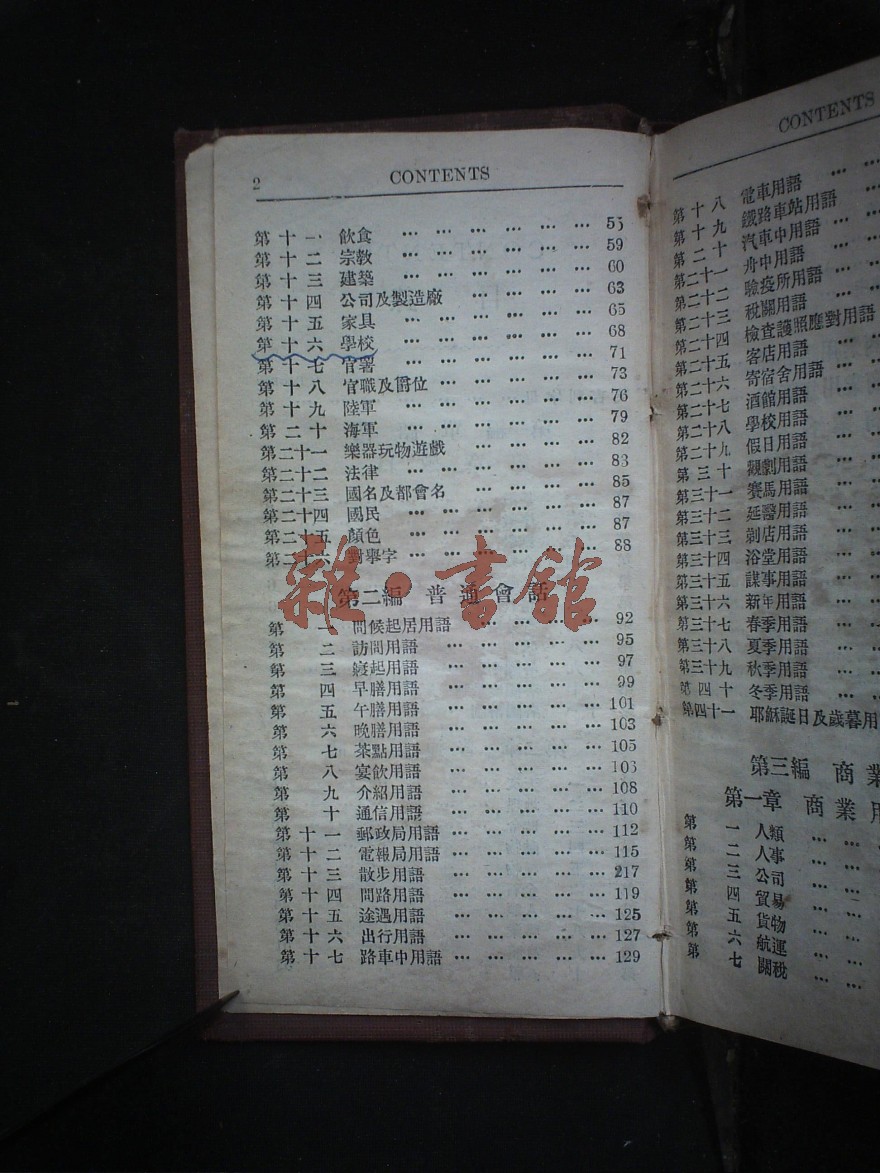 2 CONTENTS
第十一 飲食 … … … … … … 55
第十二 宗教 … … … … … … 59
第十三 建築 … … … … … … 60
第十四 公司及製造廠 … … … … 63
第十五 家具 … … … … … … 65
第十六 學校 … … … … … … 68
第十七 官署 … … … … … … 71
第十八 官職及爵位 … … … … … 73
第十九 陸軍 … … … … … … 76
第二十 海軍 … … … … … … 79
第二十一 樂器玩物遊戲 … … … … 82
第二十二 法律 … … … … … … 83
第二十三 國名及都會名 … … … … 85
第二十四 國民 … … … … … … 87
第二十五 顏色 … … … … … … 87
第二十六 對舉字 … … … … … … 88
雜·書館
第二編 普通會話
第一 問候起居用語 … … … … 92
第二 訪問用語 … … … … … 95
第三 寢起用語 … … … … … 97
第四 早膳用語 … … … … … 99
第五 午膳用語 … … … … … 101
第六 晚膳用語 … … … … … 103
第七 茶點用語 … … … … … 105
第八 宴飲用語 … … … … … 106
第九 介紹用語 … … … … … 108
第十 通信用語 … … … … … 110
第十一 郵政局用語 … … … … … 112
第十二 電報局用語 … … … … … 115
第十三 散步用語 … … … … … 217
第十四 問路用語 … … … … … 119
第十五 途遇用語 … … … … … 125
第十六 出行用語 … … … … … 127
第十七 路車中用語 … … … … … 129
CONTENTS
第十八 電車用語 … …
第十九 鐵路車站用語 …
第二十 汽車中用語 … …
第二十一 舟中用語 … …
第二十二 驗疫所用語 …
第二十三 稅關用語 … …
第二十四 檢查護照應對用語
第二十五 客店用語 … …
第二十六 寄宿舍用語 …
第二十七 酒館用語 … …
第二十八 學校用語 … …
第二十九 假日用語 … …
第三十 觀劇用語 … …
第三十一 賽馬用語 … …
第三十二 延醫用語 … …
第三十三 剃店用語 … …
第三十四 浴堂用語 … …
第三十五 謀事用語 … …
第三十六 新年用語 … …
第三十七 春季用語 … …
第三十八 夏季用語 … …
第三十九 秋季用語 … …
第四十 冬季用語 … …
第四十一 耶穌誕日及歲暮用
第三編 商業
第一章 商業用
第一 人類 … …
第二 人事 … …
第三 公司 … …
第四 貿易 … …
第五 貨物 … …
第六 航運 … …
第七 關稅 … …